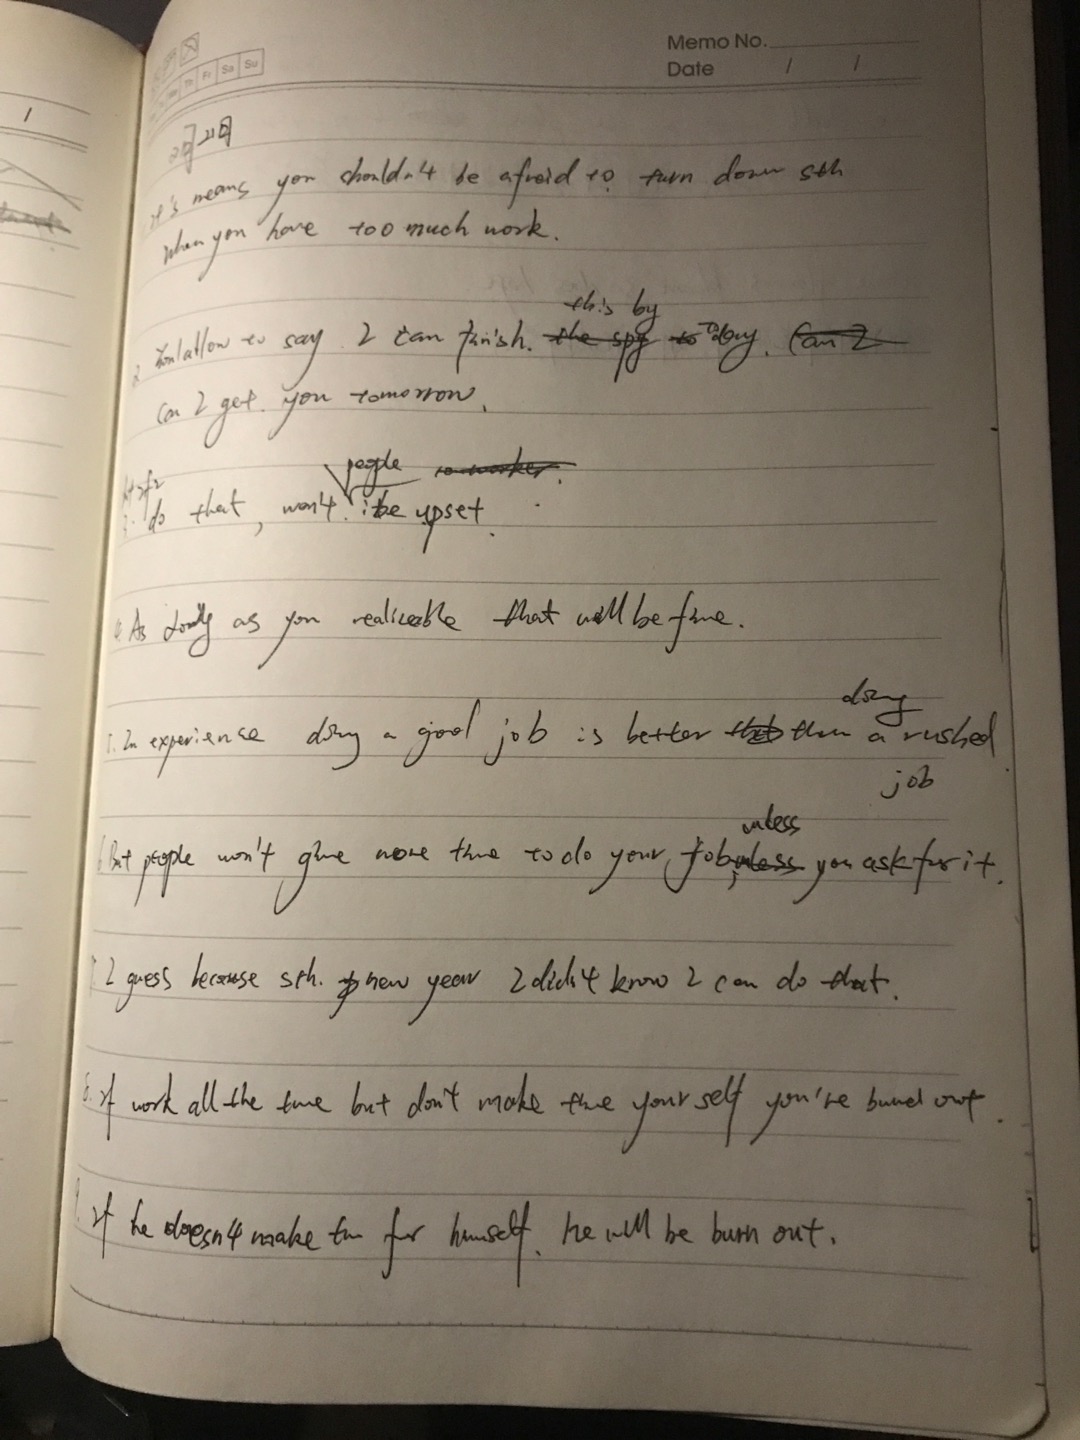 Memo No.
Date / /
Th Fr Sa Su
2月21日
It's means you shouldn't be afraid to turn down sth
when you have too much work.
this by
2. You allow to say I can finish. the spy to Today. Can I
Can I get you tomorrow.
people co-worker.
do that, won't be upset.
4. As long as you realizeable that will be fine.
doing
5. In experience doing a good job is better than a rushed
job
unless
6. But people won't give more time to do your job, unless you ask for it.
7. I guess because sth. new year I didn't know I can do that.
8. If work all the time but don't make time yourself you're burned out.
9. If he doesn't make tim for himself. he will be burn out.